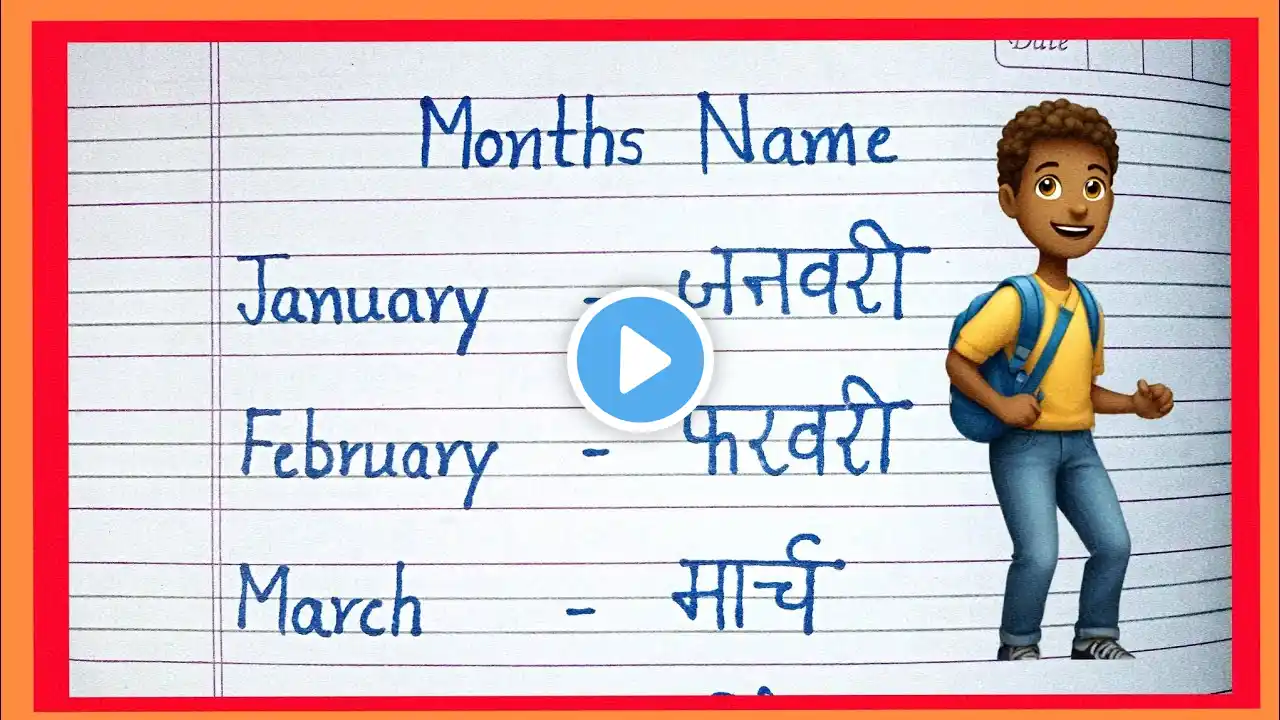 Date
Months Name
January - जनवरी
February - फरवरी
March - मार्च